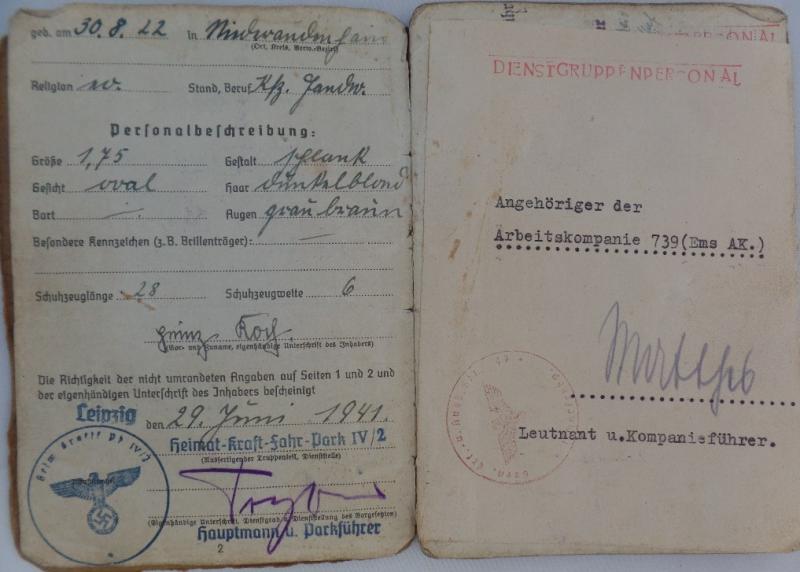 geb. am 30.8.22 in
(Ort, Kreis, Verw.-Bezirk)
Religion ev. Stand, Beruf Kfz. Handw.
Personalbeschreibung:
Größe 1,75 Gestalt schlank
Gesicht oval Haar dunkelblond
Bart —. Augen graubraun
Besondere Kennzeichen (z.B. Brillenträger): —
Schuhzeuglänge 28 Schuhzeugweite 6
Heinz Koch.
(Vor- und Zuname, eigenhändige Unterschrift des Inhabers)
Die Richtigkeit der nicht umrandeten Angaben auf Seiten 1 und 2 und
der eigenhändigen Unterschrift des Inhabers bescheinigt
Leipzig den 29. Juni 1941.
Heimat-Kraft-Fahr-Park IV/2
(Ausfertigender Truppenteil, Dienststelle)
(Eigenhändige Unterschrift, Dienstgrad u. Dienststellung des Vorgesetzten)
Hauptmann u. Parkführer
2
DIENSTGRUPPENPERSONAL
Angehöriger der
Arbeitskompanie 739(Ems AK.)
Leutnant u.Kompanieführer.